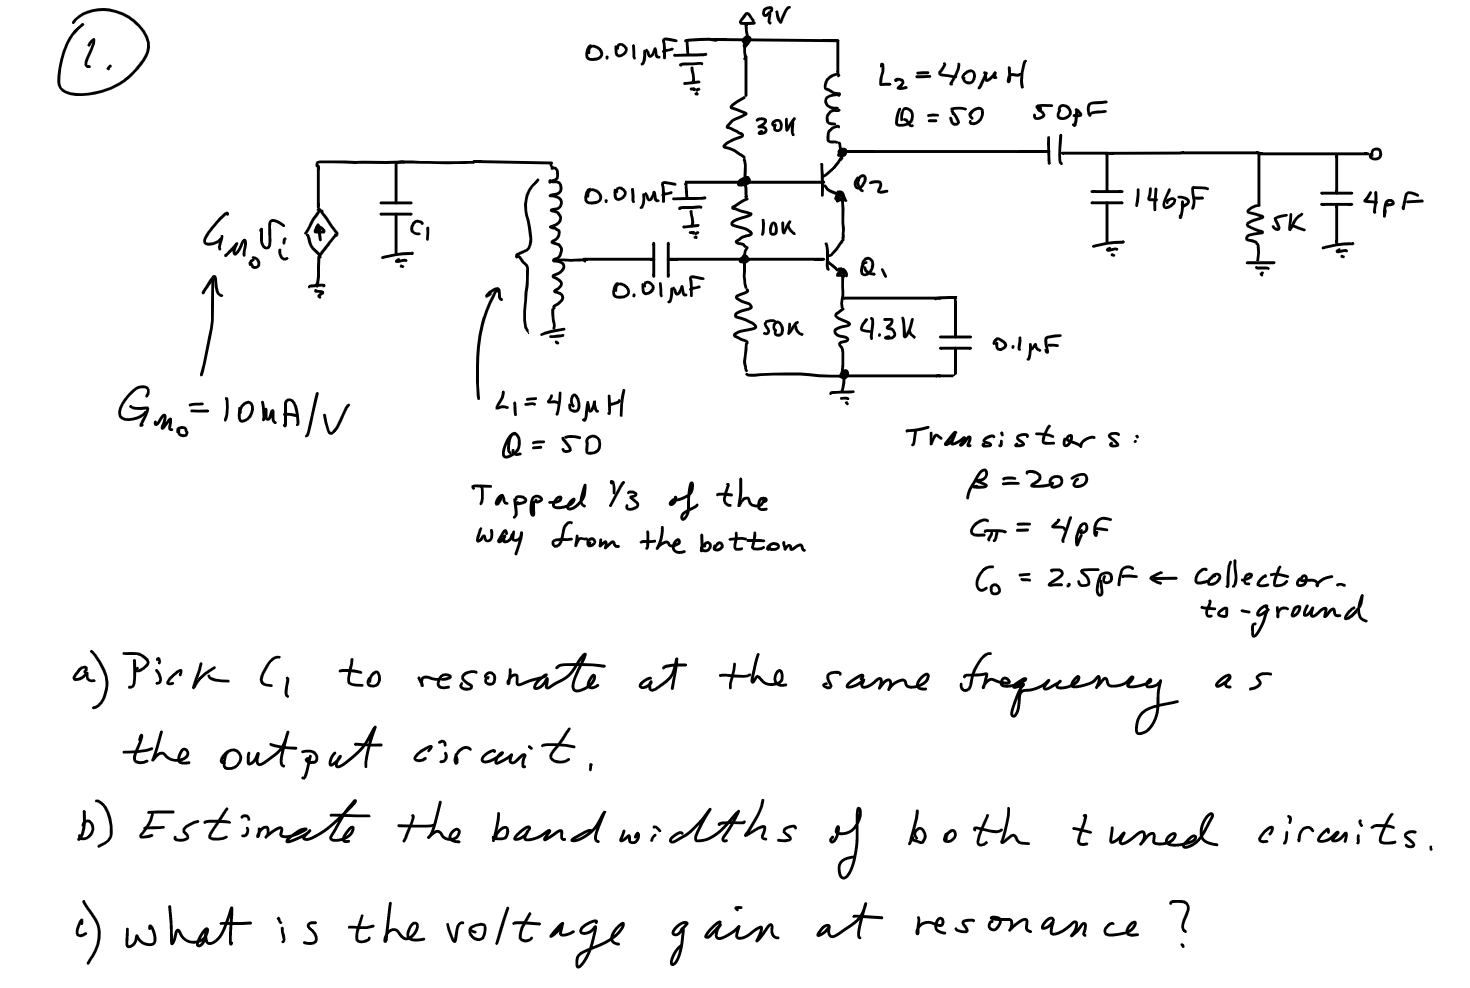 1.
9V
0.01μF
L₂ = 40μH
Q = 50
50pF
30K
0.01μF
Q₂
10K
146pF
5K
4pF
Gₘ₀ vᵢ
C₁
0.01μF
Q₁
50K
4.3K
0.1μF
Gₘ₀ = 10mA/V
L₁ = 40μH
Q = 50
Tapped 1/3 of the
way from the bottom
Transistors:
β = 200
Cπ = 4pF
C₀ = 2.5pF ← collector-
to-ground
a) Pick C₁ to resonate at the same frequency as
the output circuit.
b) Estimate the bandwidths of both tuned circuits.
c) what is the voltage gain at resonance?